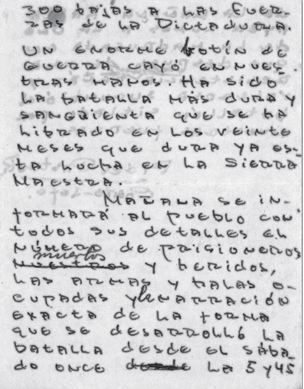 300 bajas a las fuer-
zas de la Dictadura.
Un enorme botín de
guerra cayó en nues-
tras manos. Ha sido
la batalla más dura y
sangrienta que se ha
librado en los veinte
meses que dura ya es-
ta lucha en la Sierra
Maestra.
Mañana se in-
formará al pueblo con
todos sus detalles el
número de prisioneros
muertos
y heridos,
las armas y balas o-
cupadas y la narración
exacta de la forma
que se desarrolló la
batalla desde el sába-
do once desde la 5 y 45